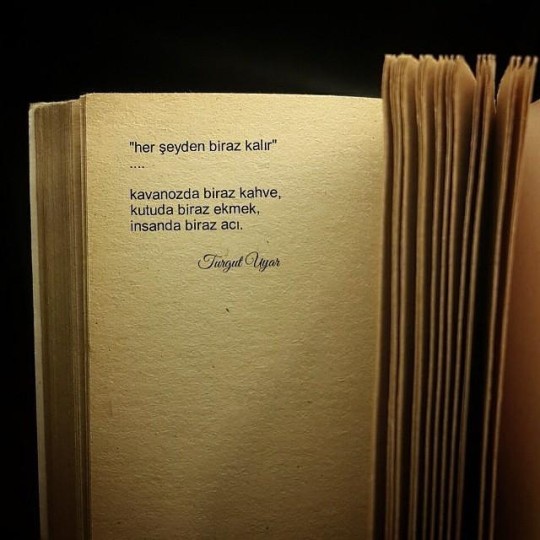 "her şeyden biraz kalır"
....
kavanozda biraz kahve,
kutuda biraz ekmek,
insanda biraz acı.
Turgut Uyar